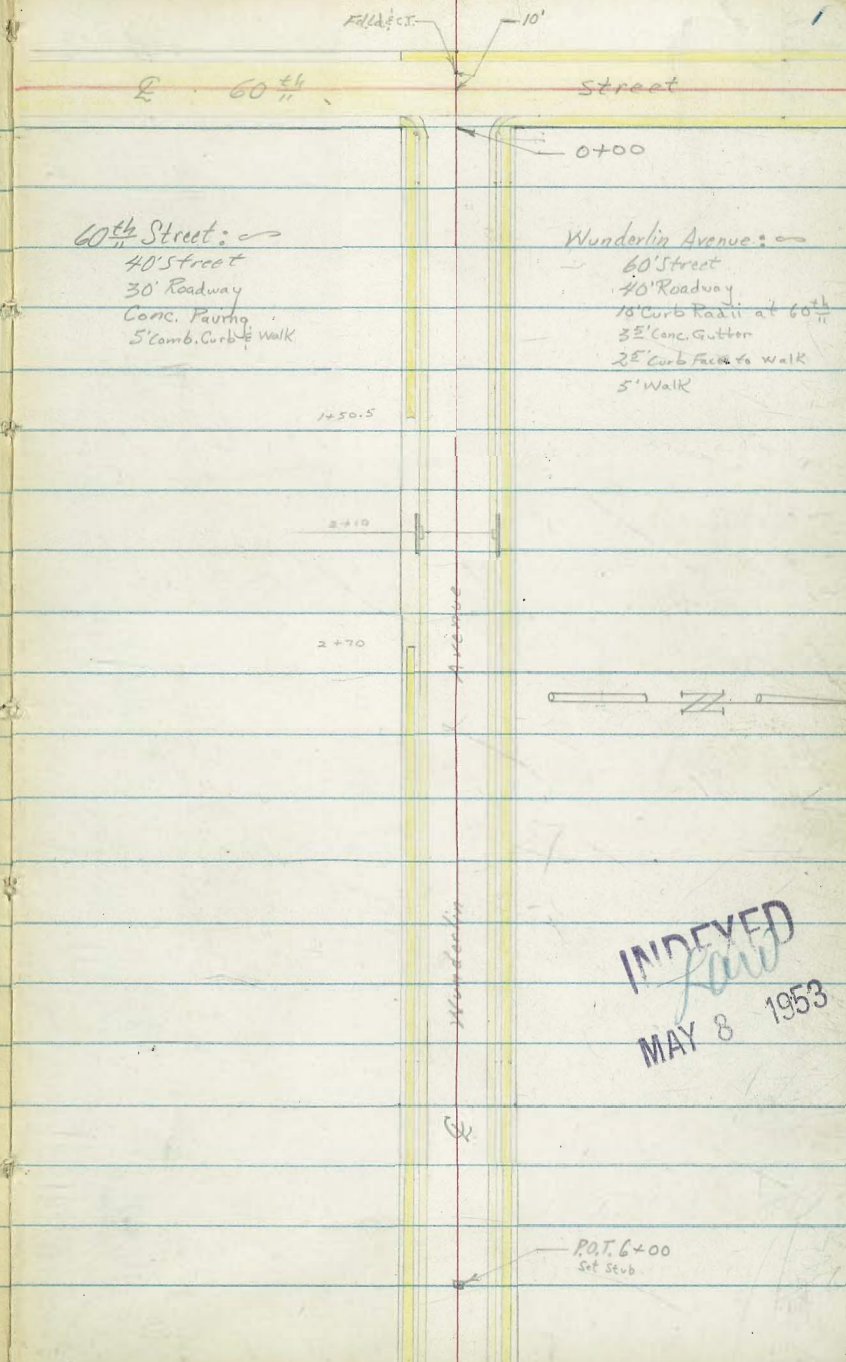 Fd. Ld. & C.T.
10'
1
℄ 60th Street
0+00
60th Street:
40' Street
30' Roadway
Conc. Paving
5' Comb. Curb & Walk
Wunderlin Avenue:
60' Street
40' Roadway
10' Curb Radii at 60th
3.5' Conc. Gutter
2.5' Curb Face to Walk
5' Walk
1+50.5
2+10
2+70
℄ Wunderlin Avenue
INDEXED
MAY 8 1953
P.O.T. 6+00
Set Stub